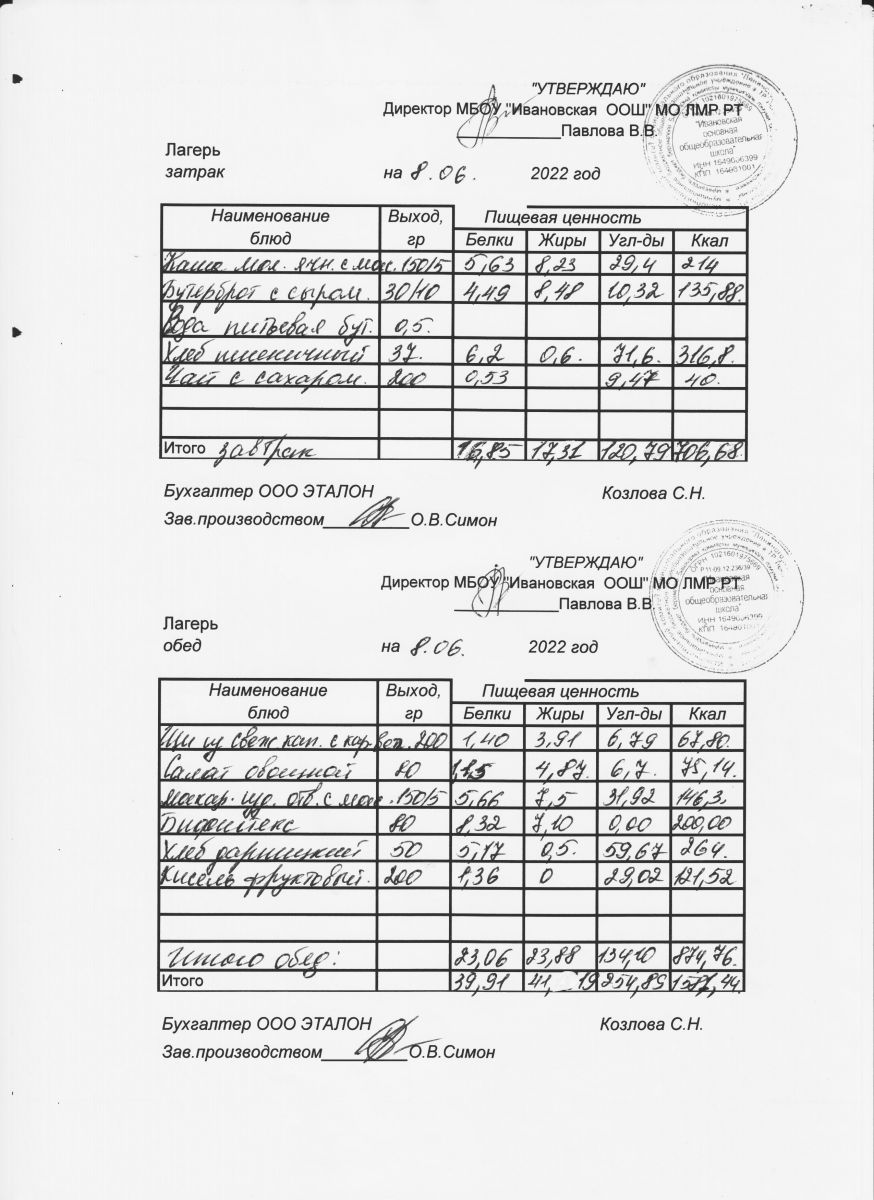 "УТВЕРЖДАЮ"
Директор МБОУ "Ивановская ООШ" МО ЛМР РТ
____________Павлова В.В.
"Ивановская
основная
общеобразовательная
школа"
ИНН 1649006399
КПП 164901001
Лагерь
затрак на 8.06. 2022 год
Наименование блюд Выход, гр Пищевая ценность
Белки Жиры Угл-ды Ккал
Каша мол. ячн. с мас. 150/5 5,63 8,23 29,4 214
Бутерброт с сыром. 30/10 4,49 8,48 10,32 135,88.
Вода питьевая бут. 0,5.
Хлеб пшеничный 37. 6,2 0,6. 71,6. 316,8.
Чай с сахаром. 200 0,53 9,47 40.
Итого завтрак 16,85 17,31 120,79 706,68.
Бухгалтер ООО ЭТАЛОН Козлова С.Н.
Зав.производством__________О.В.Симон
"УТВЕРЖДАЮ"
Директор МБОУ "Ивановская ООШ" МО ЛМР РТ
____________Павлова В.В.
"Ивановская
основная
общеобразовательная
школа"
ИНН 1649006399
КПП 164901001
Лагерь
обед на 8.06. 2022 год
Наименование блюд Выход, гр Пищевая ценность
Белки Жиры Угл-ды Ккал
Щи из свеж кап. с кар. 200 1,40 3,91 6,79 67,80.
Салат овощной 80 1,15 4,87. 6,7. 75,14.
макар. изд. отв. с мас. 150/5 5,66 7,5 31,92 146,3.
Бифштекс 80 8,32 7,10 0,00 200,00
Хлеб дарницкий 50 5,17 0,5. 59,67 264.
Кисель фруктовый. 200 1,36 0 29,02 121,52
Итого обед: 23,06 23,88 134,10 874,76.
Итого 39,91 41,19 254,89 1581,44.
Бухгалтер ООО ЭТАЛОН Козлова С.Н.
Зав.производством__________О.В.Симон